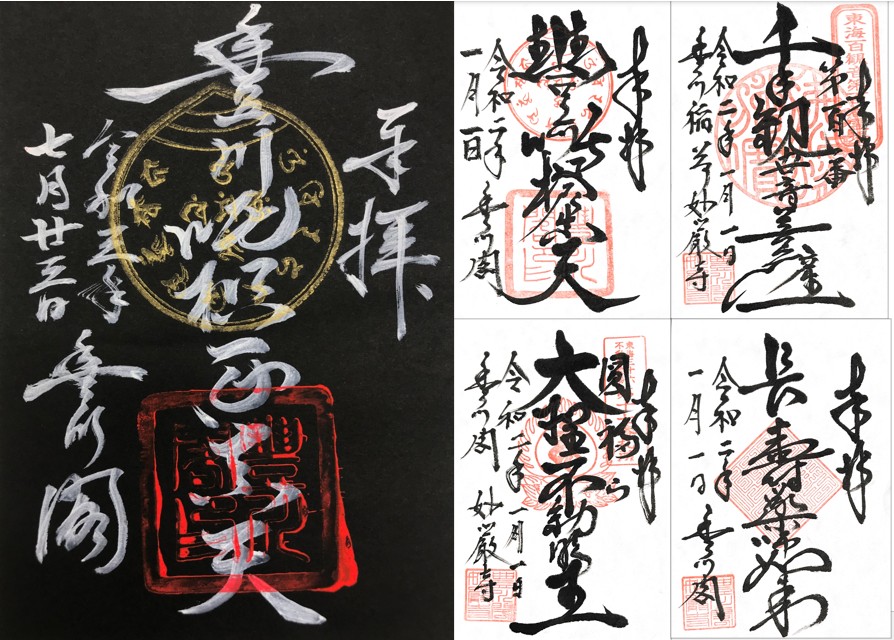 奉拝
豊川吒枳尼真天
七月廿三日
豊川閣
奉拝
豊川吒枳尼真天
令和二年
一月一日
豊川閣
東海百観音
奉拝
第百番
千手観世音菩薩
令和二年一月一日
豊川稲荷妙厳寺
奉拝
圓福山
大聖不動明王
令和二年一月一日
豊川閣 妙厳寺
奉拝
長寿薬師如来
令和二年
一月一日
豊川閣